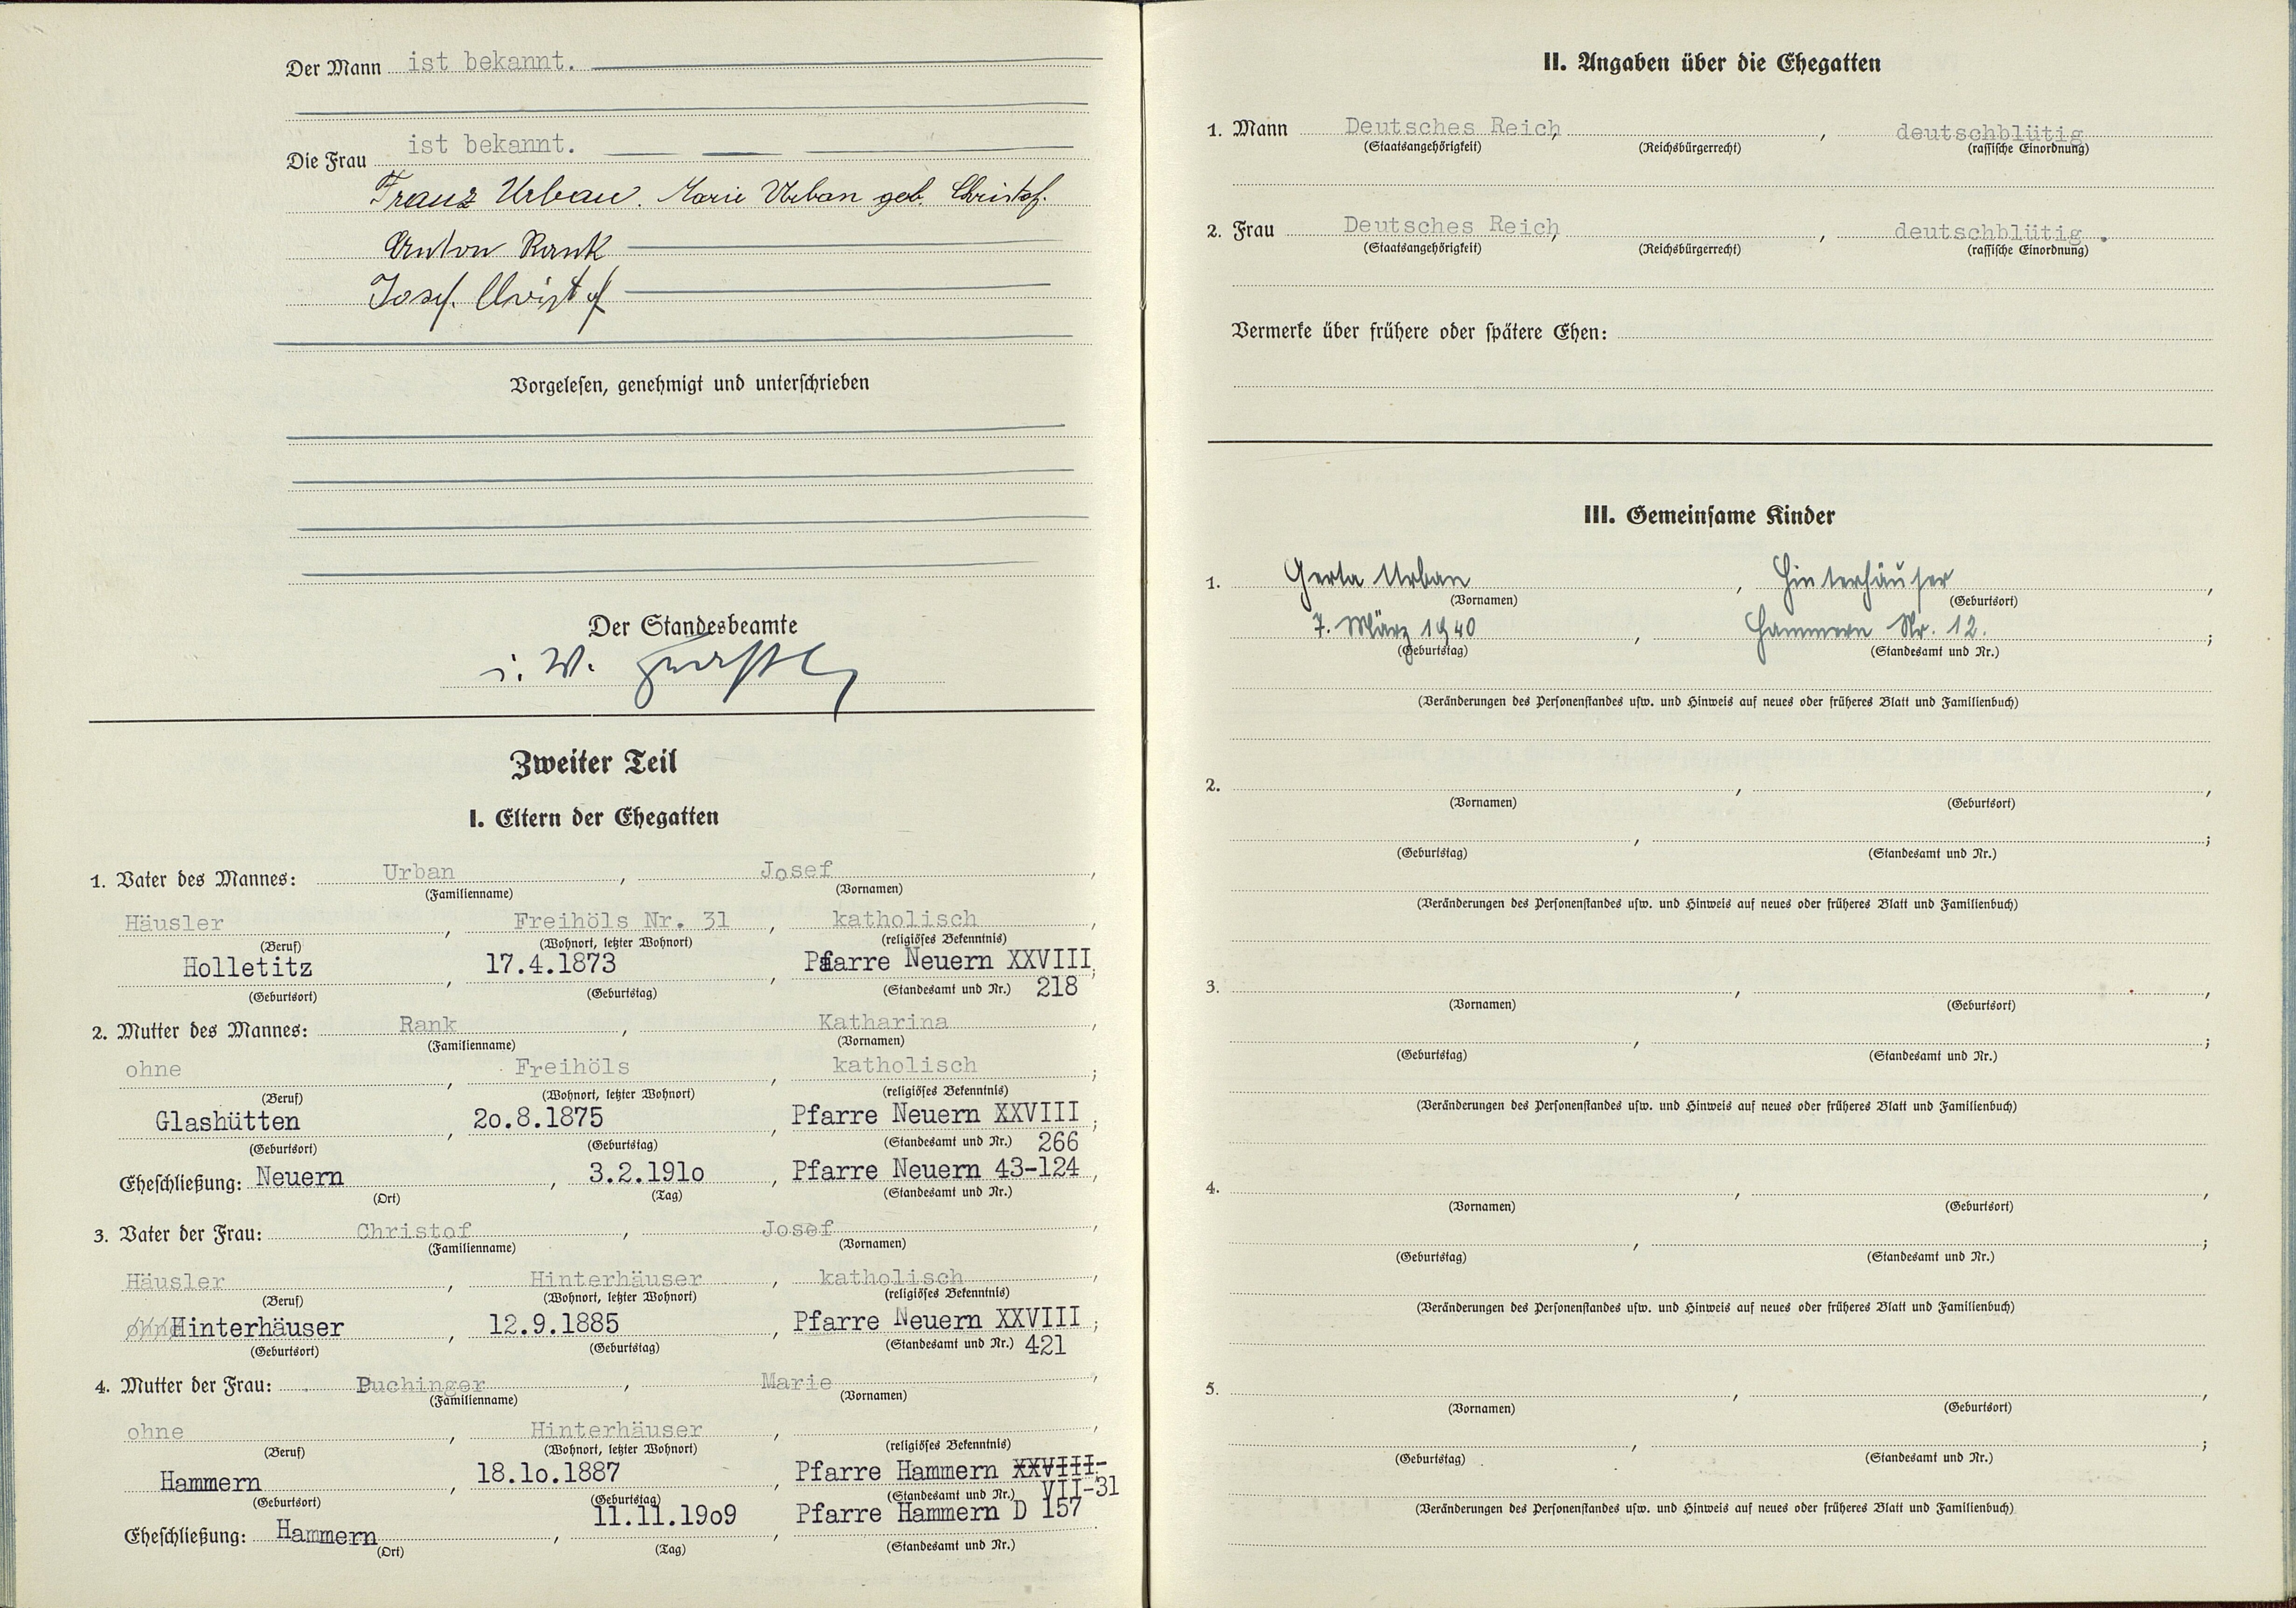 Der Mann ist bekannt.
Die Frau ist bekannt.
Franz Urban. Marie Urban geb. Christof.
Anton Rank
Josef Christof
Vorgelesen, genehmigt und unterschrieben
Der Standesbeamte
Zweiter Teil
I. Eltern der Ehegatten
1. Vater des Mannes: Urban, Josef,
(Familienname) (Vornamen)
Häusler, Freihöls Nr. 31, katholisch,
(Beruf) (Wohnort, letzter Wohnort) (religiöses Bekenntnis)
Holletitz, 17.4.1873, Pfarre Neuern XXVIII;
(Geburtsort) (Geburtstag) (Standesamt und Nr.) 218
2. Mutter des Mannes: Rank, Katharina,
(Familienname) (Vornamen)
ohne, Freihöls, katholisch;
(Beruf) (Wohnort, letzter Wohnort) (religiöses Bekenntnis)
Glashütten, 2o.8.1875, Pfarre Neuern XXVIII;
(Geburtsort) (Geburtstag) (Standesamt und Nr.) 266
Eheschließung: Neuern, 3.2.191o, Pfarre Neuern 43-124,
(Ort) (Tag) (Standesamt und Nr.)
3. Vater der Frau: Christof, Josef,
(Familienname) (Vornamen)
Häusler, Hinterhäuser, katholisch,
(Beruf) (Wohnort, letzter Wohnort) (religiöses Bekenntnis)
ohne Hinterhäuser, 12.9.1885, Pfarre Neuern XXVIII;
(Geburtsort) (Geburtstag) (Standesamt und Nr.) 421
4. Mutter der Frau: Puchinger, Marie,
(Familienname) (Vornamen)
ohne, Hinterhäuser, ,
(Beruf) (Wohnort, letzter Wohnort) (religiöses Bekenntnis)
Hammern, 18.1o.1887, Pfarre Hammern XXVIII-
(Geburtsort) (Geburtstag) (Standesamt und Nr.) VII-31
Eheschließung: Hammern, 11.11.19o9, Pfarre Hammern D 157
(Ort) (Tag) (Standesamt und Nr.)
II. Angaben über die Ehegatten
1. Mann Deutsches Reich, , deutschblütig
(Staatsangehörigkeit) (Reichsbürgerrecht) (rassische Einordnung)
2. Frau Deutsches Reich, , deutschblütig.
(Staatsangehörigkeit) (Reichsbürgerrecht) (rassische Einordnung)
Vermerke über frühere oder spätere Ehen:
III. Gemeinsame Kinder
1. Gerta Urban, Hinterhäuser,
(Vornamen) (Geburtsort)
7. März 1940, Hammern Nr. 12.;
(Geburtstag) (Standesamt und Nr.)
(Veränderungen des Personenstandes usw. und Hinweis auf neues oder früheres Blatt und Familienbuch)
2. , ,
(Vornamen) (Geburtsort)
, ;
(Geburtstag) (Standesamt und Nr.)
(Veränderungen des Personenstandes usw. und Hinweis auf neues oder früheres Blatt und Familienbuch)
3. , ,
(Vornamen) (Geburtsort)
, ;
(Geburtstag) (Standesamt und Nr.)
(Veränderungen des Personenstandes usw. und Hinweis auf neues oder früheres Blatt und Familienbuch)
4. , ,
(Vornamen) (Geburtsort)
, ;
(Geburtstag) (Standesamt und Nr.)
(Veränderungen des Personenstandes usw. und Hinweis auf neues oder früheres Blatt und Familienbuch)
5. , ,
(Vornamen) (Geburtsort)
, ;
(Geburtstag) (Standesamt und Nr.)
(Veränderungen des Personenstandes usw. und Hinweis auf neues oder früheres Blatt und Familienbuch)